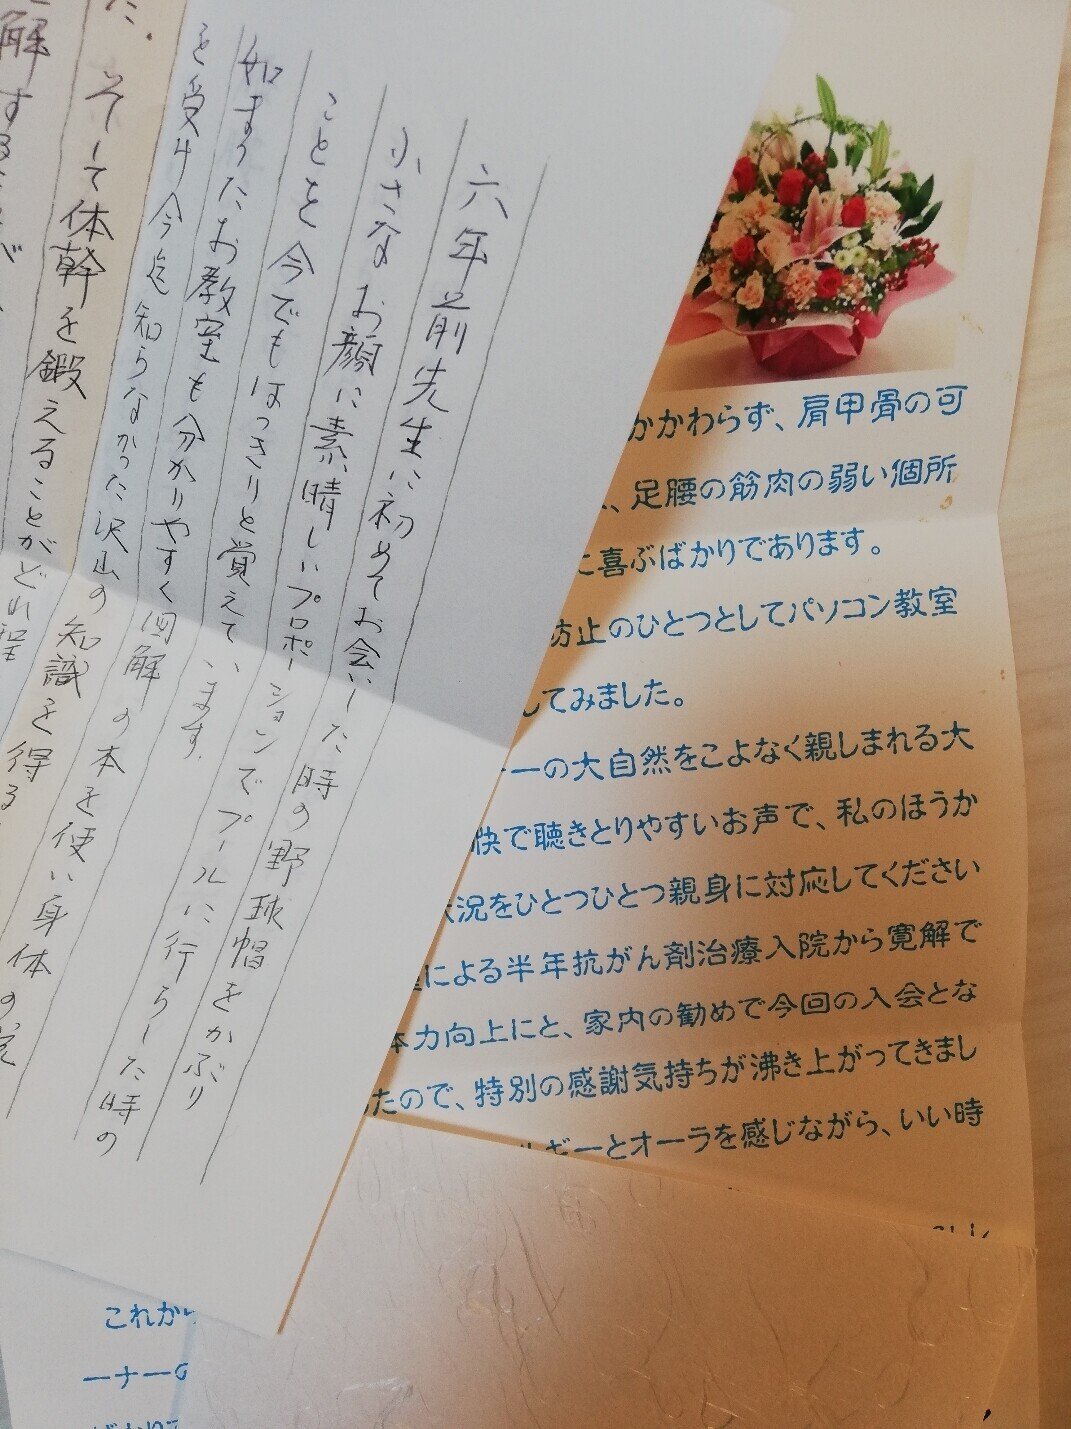 六年前先生に初めてお会いした時の野球帽をかぶり
小さなお顔に素晴しいプロポーションでプールに行らした時の
ことを今でもはっきりと覚えています。
始まったお教室も分かりやすく図解の本を使い身体の
を受け今迄知らなかった沢山の知識を得る
た。そして体幹を鍛えることがどれ程
解する
かかわらず、肩甲骨の可
、足腰の筋肉の弱い個所
に喜ぶばかりであります。
防止のひとつとしてパソコン教室
してみました。
ーの大自然をこよなく親しまれる大
快で聴きとりやすいお声で、私のほうか
状況をひとつひとつ親身に対応してください
による半年抗がん剤治療入院から寛解で
体力向上にと、家内の勧めで今回の入会とな
たので、特別の感謝気持ちが沸き上がってきまし
ルギーとオーラを感じながら、いい時
これか
ーナーの